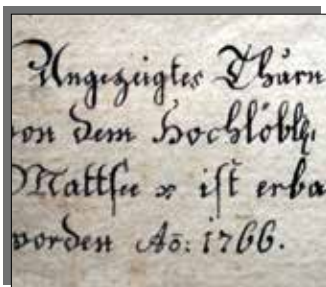 Angezeigtes Thurn
on dem Hochlöbl:
Mattsee ꝛc ist erba
worden Aō: 1766.